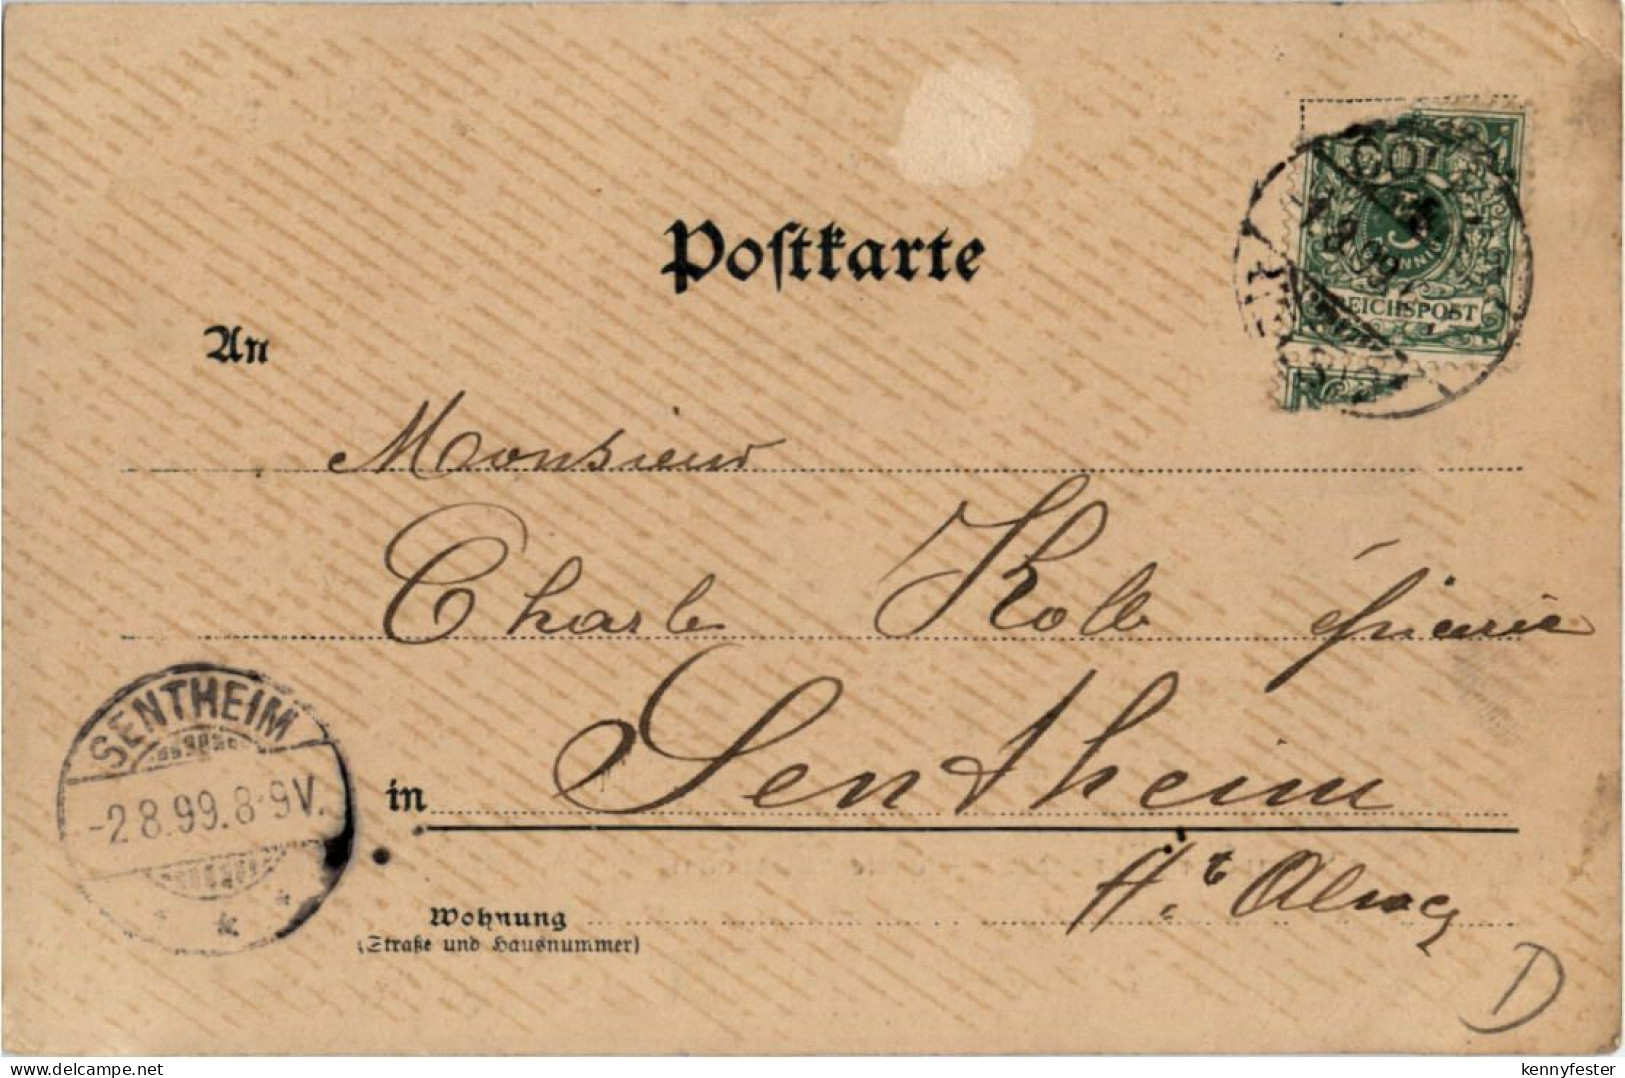 Postkarte
COL
1 8 99
5
PFENNIG
REICHSPOST
An
Monsieur
Charle Kolb épicerie
SENTHEIM
-2 8.99.8-9V.
in Sentheim
Hte Alsace
Wohnung
(Straße und Hausnummer)
D
delcampe.net
kennyfester